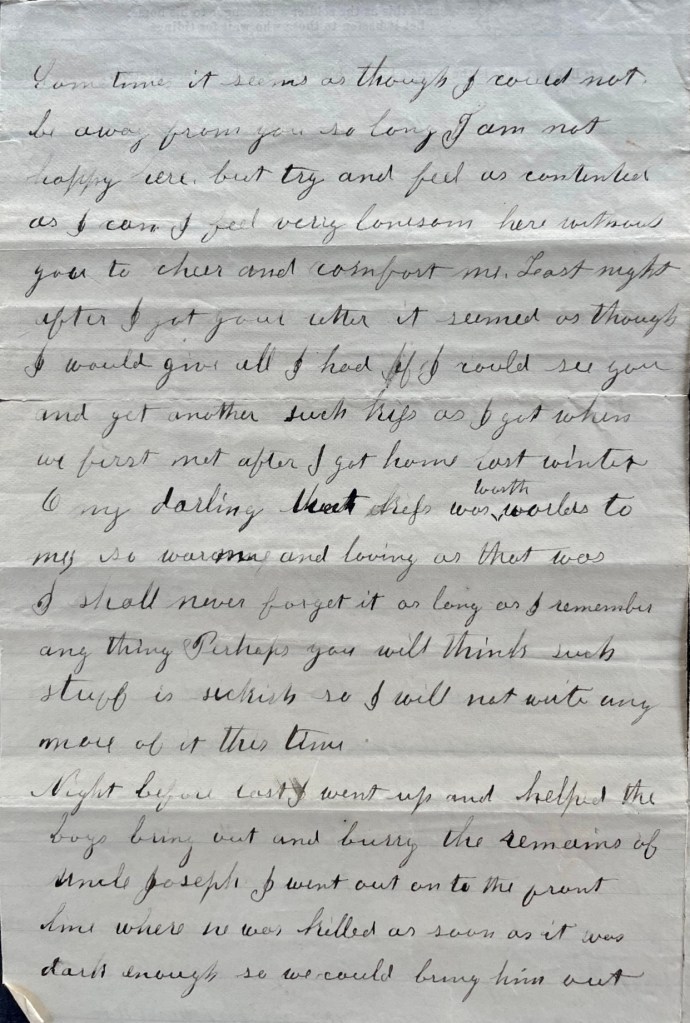 Sometime it seems as though I could not
be away from you so long I am not
happy here. but try and feel as contented
as I can I feel verry lonesom here without
you to cheer and comfort me. Last night
after I got your letter it seemed as though
I would give all I had if I could see you
and get another such kiss as I got when
we first met after I got home last winter
O my darling that kiss was worth worlds to
me so warm and loving as that was
I shall never forget it as long as I remember
any thing Perhaps you will think such
stuff is sickish so I will not write any
more of it this time.
Night before last I went up and helped the
boys bring out and burry the remains of
uncle Joseph I went out on to the front
line where he was killed as soon as it was
dark enough so we could bring him out